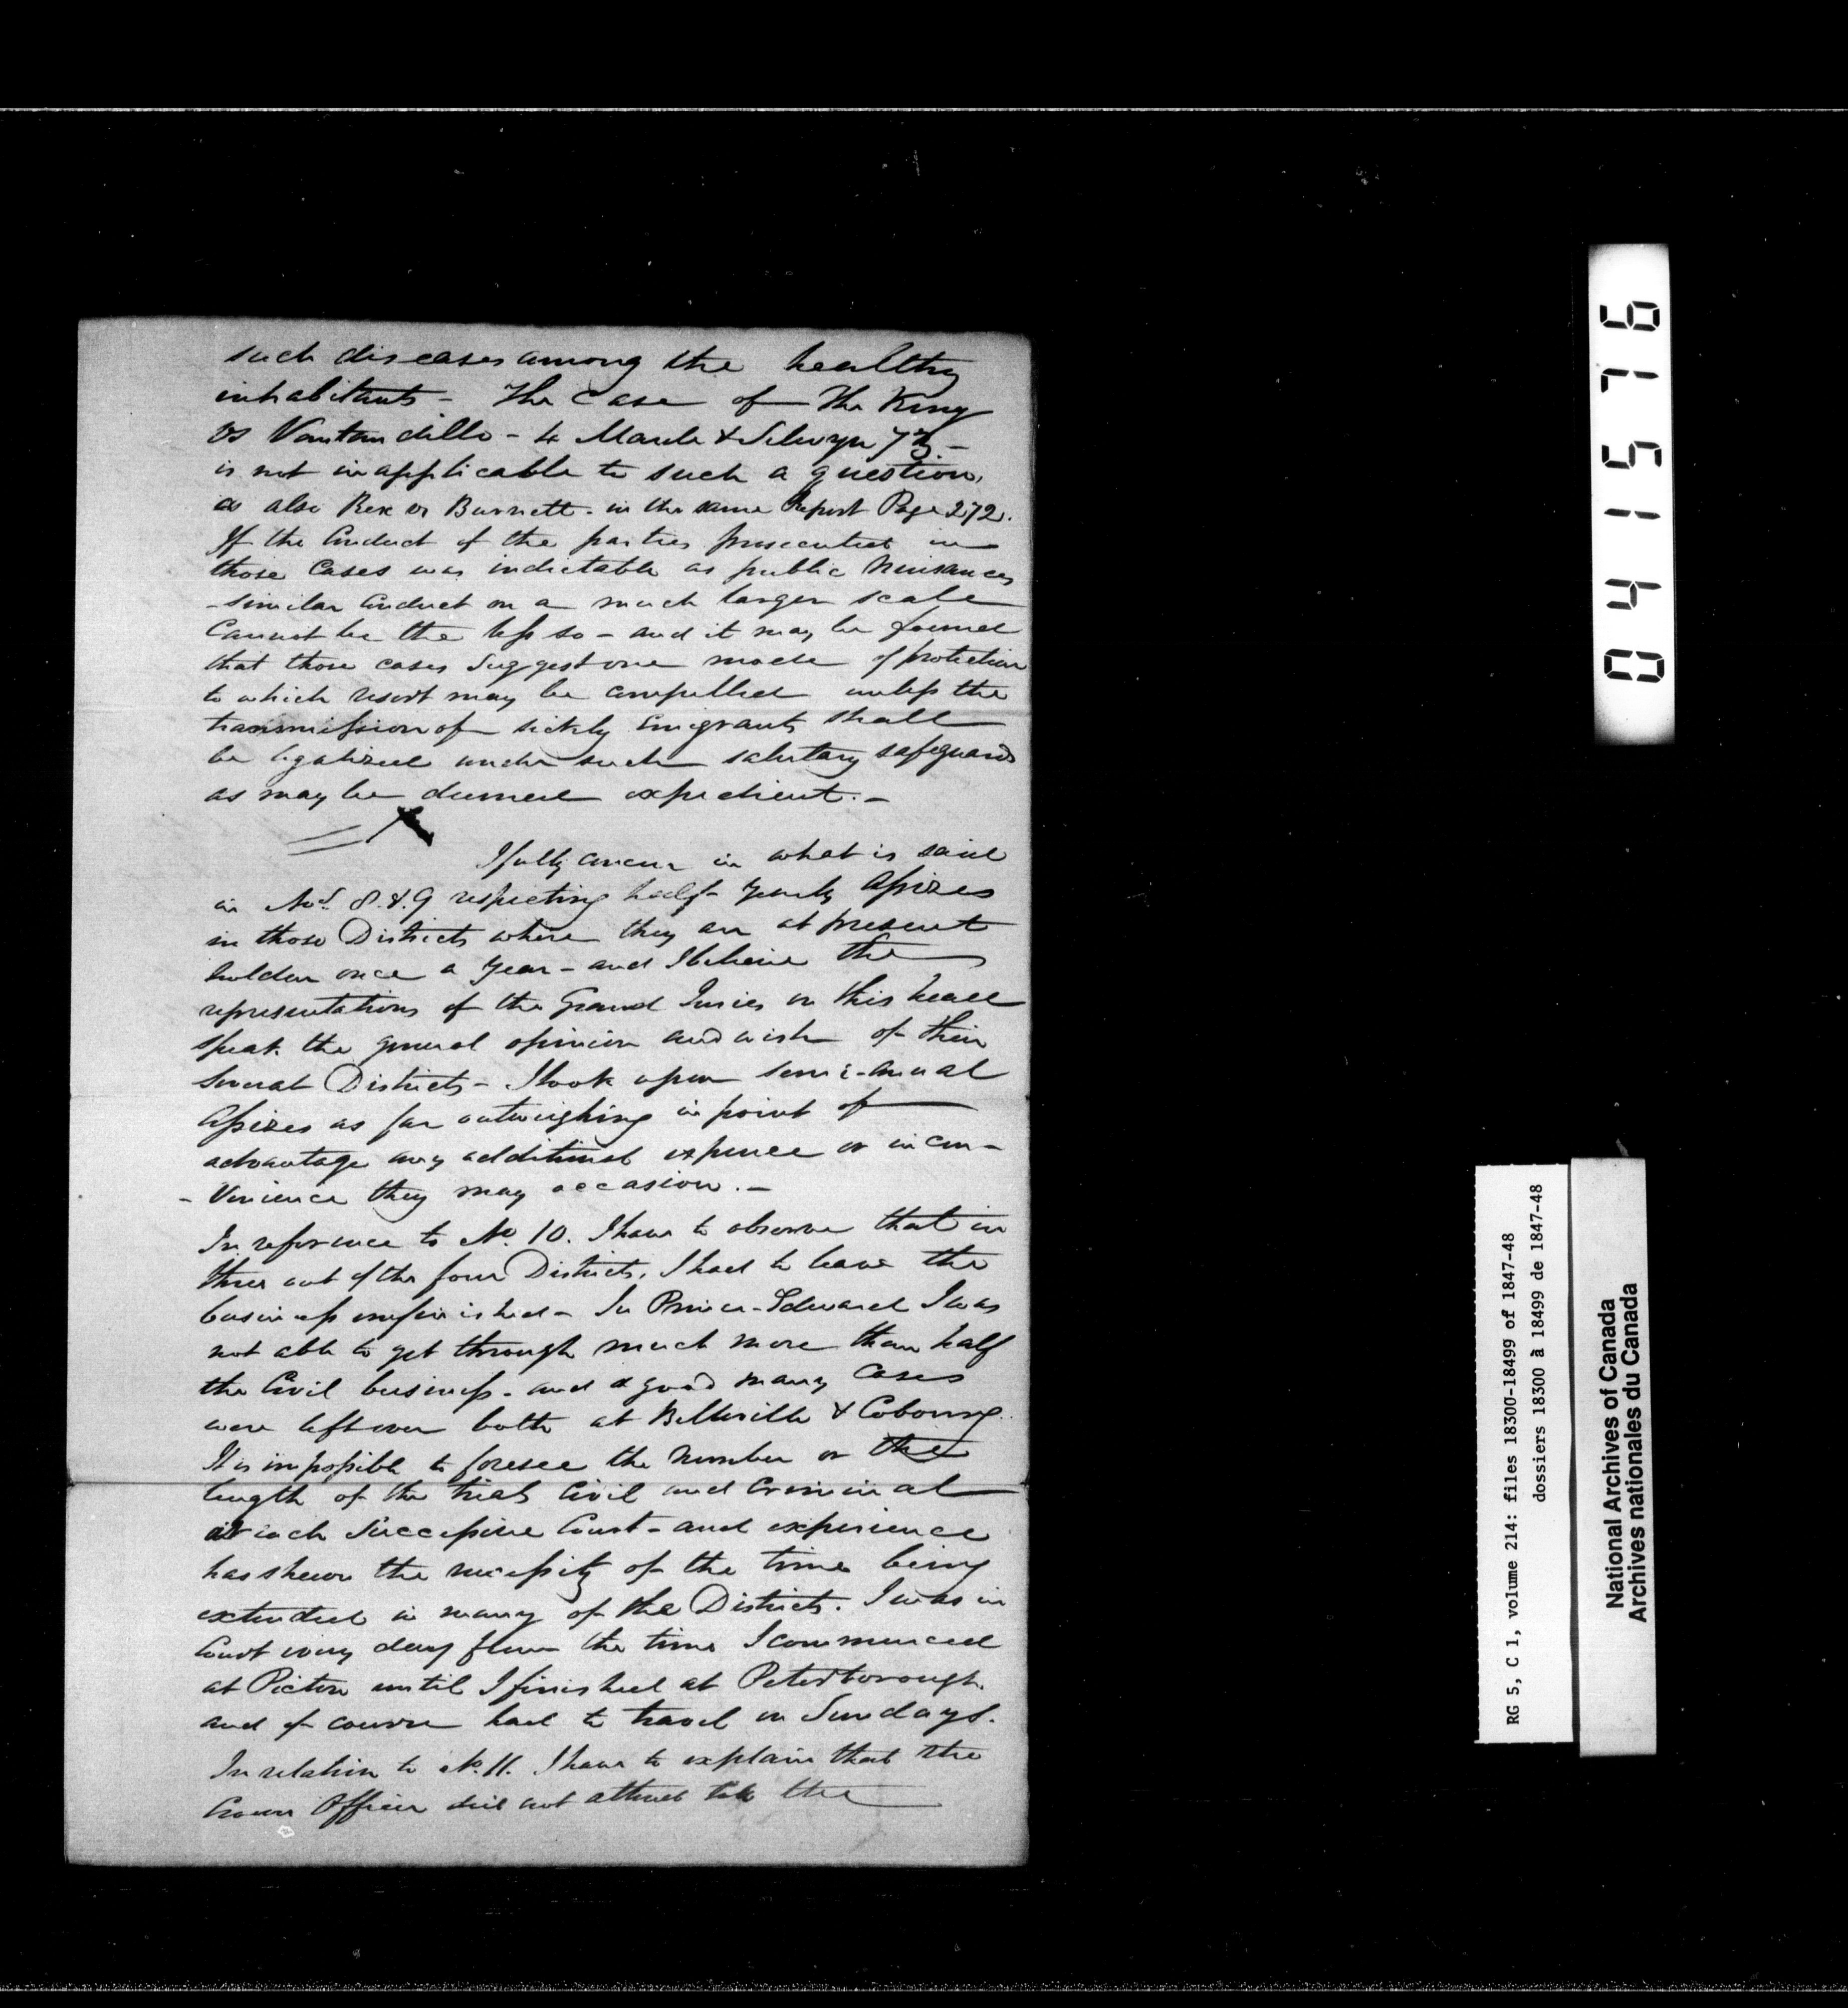 such diseases among the healthy
inhabitants - The Case of The King
vs Vantandillo - 4 Maule & Selwyn 73 -
is not inapplicable to such a question,
as also Rex vs Burnett - in the same Report Page 272.
If the Conduct of the parties prosecuted in
those Cases was indictable as public Nuisances
similar Conduct on a much larger scale
Cannot be the less so - and it may be found
that those cases suggest one mode of protection
to which resort may be compelled unless the
transmission of sickly Emigrants shall
be legalized under such salutary safeguards
as may be deemed expedient. -
I fully concur in what is said
in Nos. 8 & 9 respecting half-yearly Assizes
in those Districts where they are at present
holden once a Year - and I believe the
representations of the Grand Juries on this head
speak the general opinion and wish of their
several Districts - I look upon semi-annual
Assizes as far outweighing in point of
advantage any additional expence or incon-
- venience they may occasion. -
In reference to No. 10. I have to observe that in
three out of the four Districts, I had to leave the
business unfinished - In Prince-Edward I was
not able to get through much more than half
the Civil business - and a good many Cases
were left over both at Belleville & Cobourg.
It is impossible to foresee the number or the
length of the trials Civil and Criminal
at each Successive Court - and experience
has shewn the necessity of the time being
extended in many of the Districts. I was in
Court every day from the time I commenced
at Picton until I finished at Peterborough.
and of course had to travel on Sundays.
In relation to No. 11. I have to explain that the
Crown Officer did not attend the
041576
RG 5, C 1, volume 214: files 18300-18499 of 1847-48
dossiers 18300 à 18499 de 1847-48
National Archives of Canada
Archives nationales du Canada